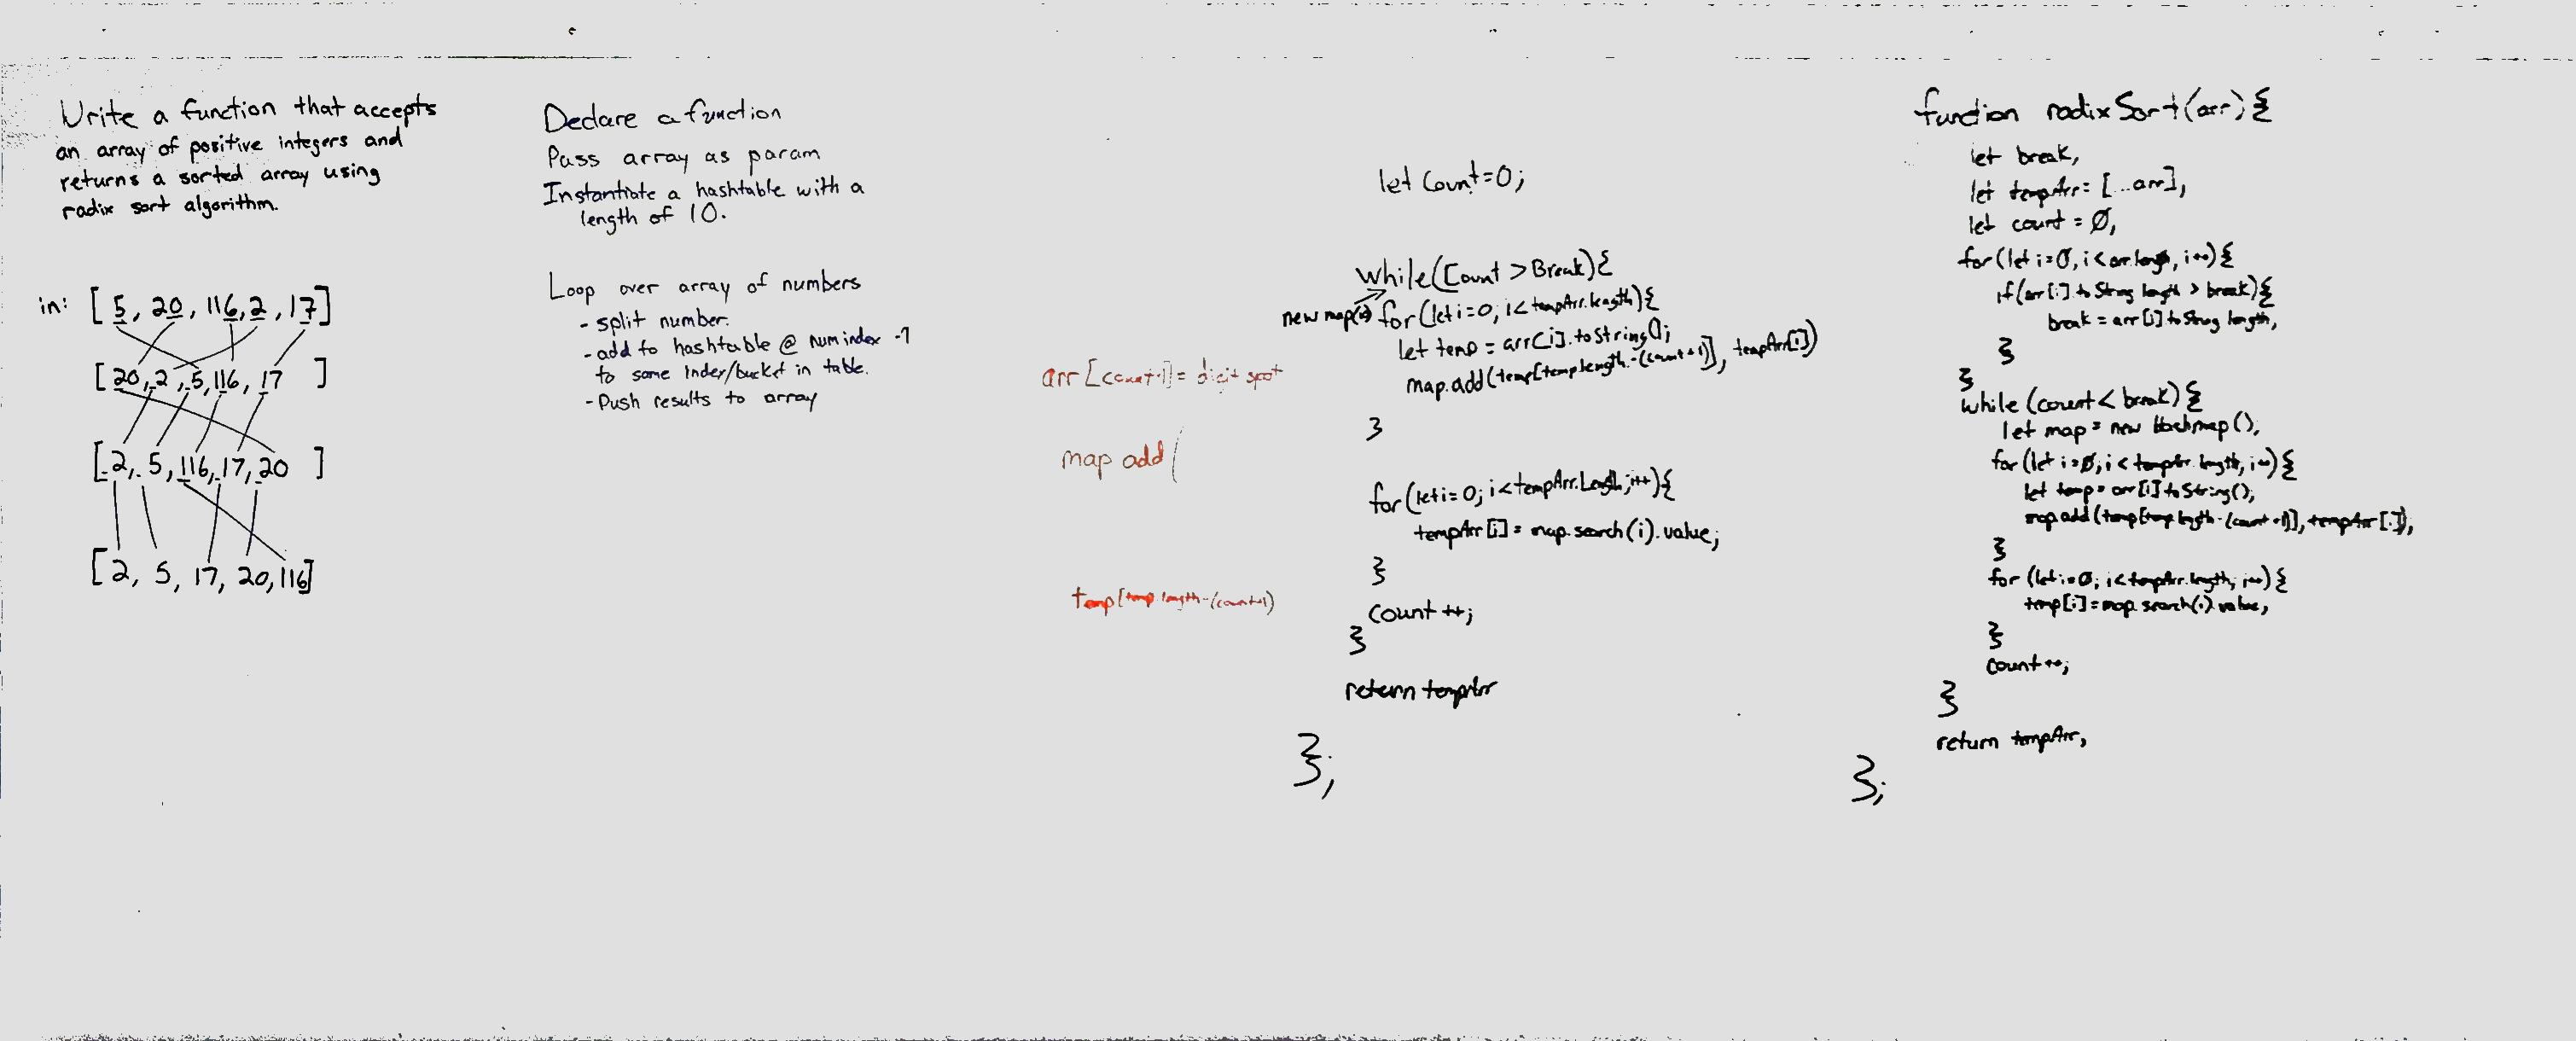 Write a function that accepts
an array of positive integers and
returns a sorted array using
radix sort algorithm.
in: [5, 20, 116, 2, 17]
[20, 2, 5, 116, 17 ]
[2, 5, 116, 17, 20 ]
[2, 5, 17, 20, 116]
Declare a function
Pass array as param
Instantiate a hashtable with a
length of 10.
Loop over array of numbers
- split number.
- add to hashtable @ num index -1
to same index/bucket in table.
- Push results to array
arr[count+1] = digit spot
map add (
temp[temp.length-(count+1)
let Count=0;
while(Count > Break){
new map(10)
for(let i=0; i<tempArr.length){
let temp = arr[i].toString();
map.add(temp[temp.length-(count+1)], tempArr[i])
}
for(let i=0; i<tempArr.Length; i++){
tempArr[i] = map.search(i).value;
}
count++;
}
return tempArr
};
function radixSort(arr){
let break,
let tempArr = [...arr],
let count = 0,
for(let i=0, i<arr.length, i++){
if(arr[i].toString length > break){
break = arr[i] toString length,
}
}
while (count < break) {
let map = new Hashmap(),
for(let i=0, i<tempArr.length, i++){
let temp = arr[i] toString();
map add(temp[temp length-(count+1)], tempArr[i]),
}
for (let i=0; i<tempArr.length, i++){
temp[i] = map.search(i).value,
}
count++;
}
return tempArr,
};